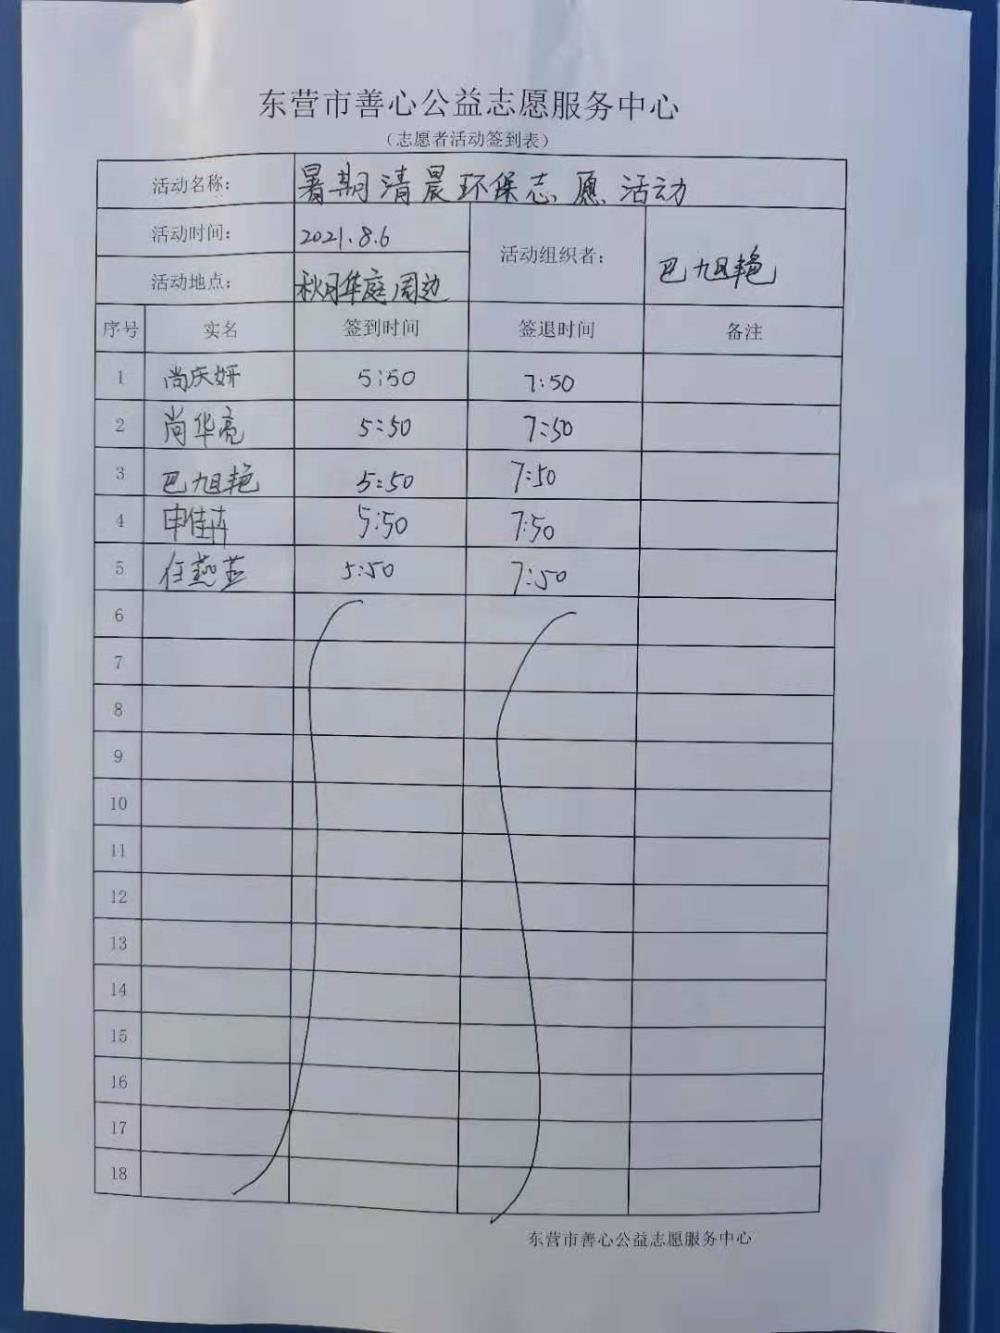 东营市善心公益志愿服务中心
（志愿者活动签到表）
活动名称： 暑期清晨环保志愿活动
活动时间： 2021.8.6 活动组织者： 巴旭艳
活动地点： 秋月华庭周边
序号 实名 签到时间 签退时间 备注
1 尚庆妍 5:50 7:50
2 尚华亮 5:50 7:50
3 巴旭艳 5:50 7:50
4 申佳卉 5:50 7:50
5 任燕 5:50 7:50
6
7
8
9
10
11
12
13
14
15
16
17
18
东营市善心公益志愿服务中心